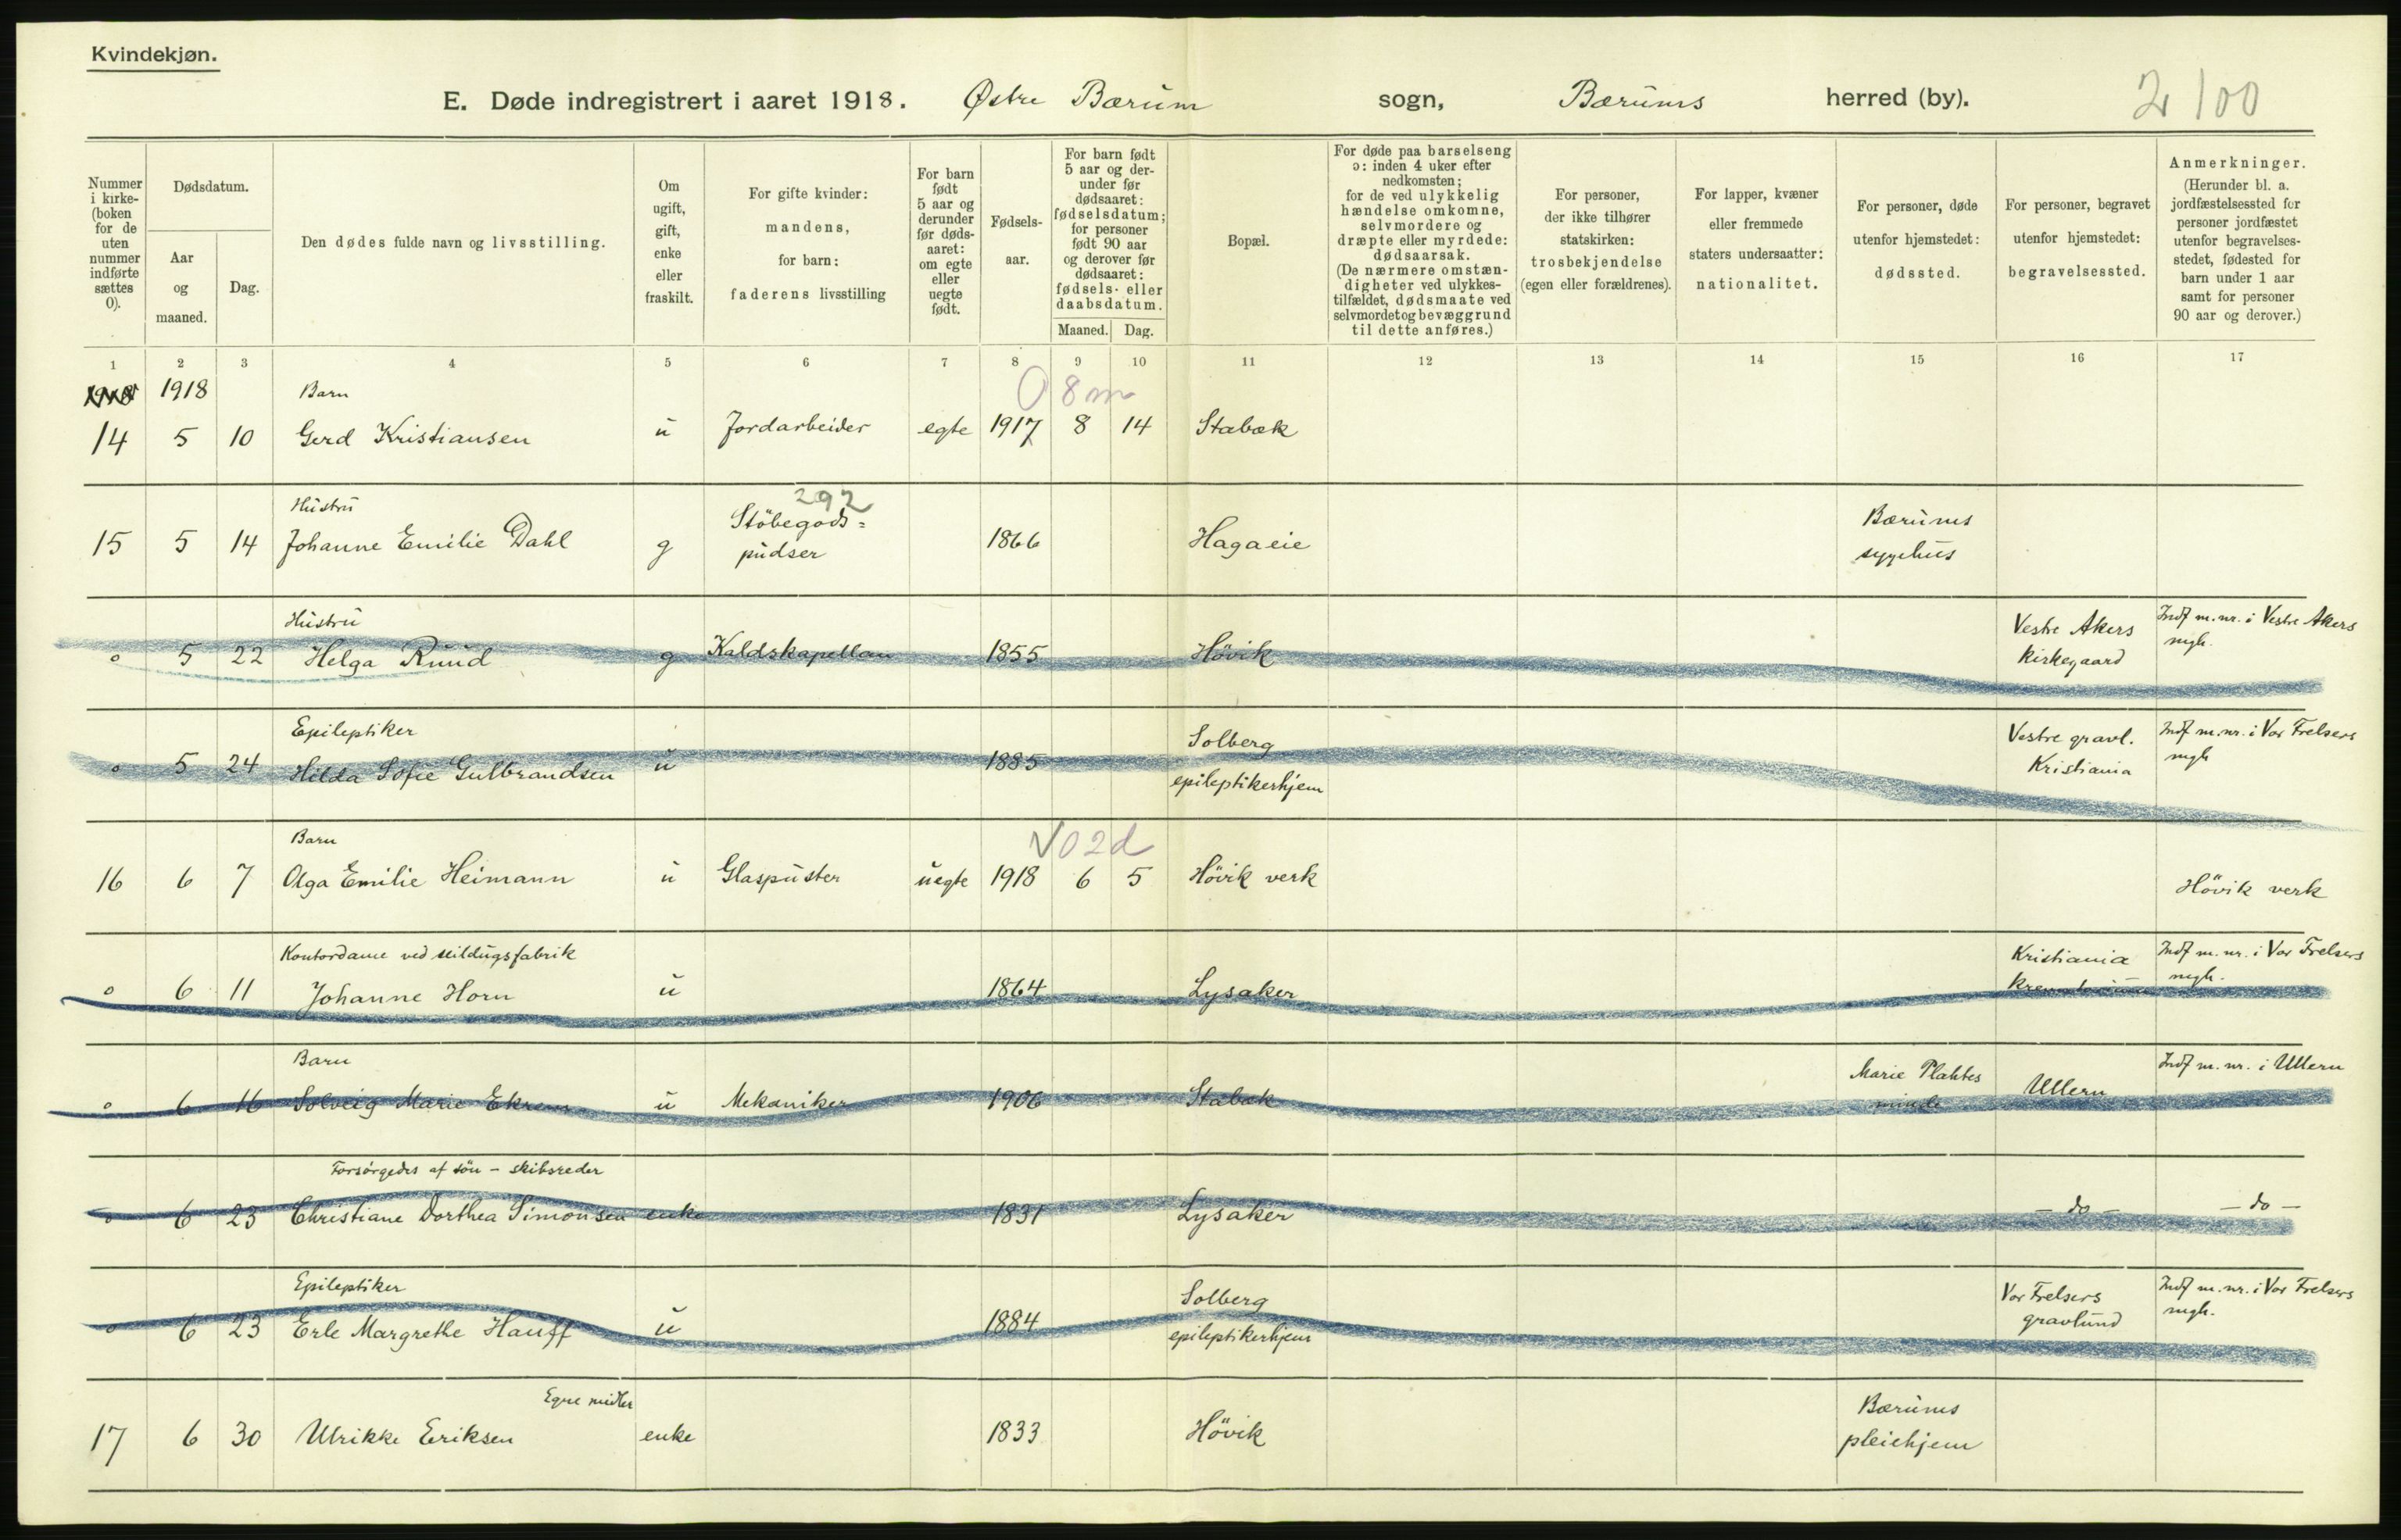 Kvindekjøn.
E. Døde indregistrert i aaret 1918. Østre Bærum sogn, Bærums herred (by). 2 100
Nummer i kirke-(boken for de uten nummer indførte sættes 0).
Dødsdatum.
Aar og maaned.
Dag.
Den dødes fulde navn og livsstilling.
Om ugift, gift, enke eller fraskilt.
For gifte kvinder: mandens, for barn: faderens livsstilling
For barn født 5 aar og derunder før døds-aaret: om egte eller uegte født.
Fødsels-aar.
For barn født 5 aar og der-under før dødsaaret: fødselsdatum; for personer født 90 aar og derover før dødsaaret: fødsels- eller daabsdatum.
Maaned. Dag.
Bopæl.
For døde paa barselseng ɔ: inden 4 uker efter nedkomsten; for de ved ulykkelig hændelse omkomne, selvmordere og dræpte eller myrdede: dødsaarsak. (De nærmere omstæn-digheter ved ulykkes-tilfældet, dødsmaate ved selvmordet og bevæggrund til dette anføres.)
For personer, der ikke tilhører statskirken: trosbekjendelse (egen eller forældrenes).
For lapper, kvæner eller fremmede staters undersaatter: nationalitet.
For personer, døde utenfor hjemstedet: dødssted.
For personer, begravet utenfor hjemstedet: begravelsessted.
Anmerkninger. (Herunder bl. a. jordfæstelsessted for personer jordfæstet utenfor begravelses-stedet, fødested for barn under 1 aar samt for personer 90 aar og derover.)
1 2 3 4 5 6 7 8 9 10 11 12 13 14 15 16 17
1918 1918 Barn 0 8 m
14 5 10 Gerd Kristiansen u Jordarbeider egte 1917 8 14 Stabæk
Hustru 292
15 5 14 Johanne Emilie Dahl g Stöbegods= pudser 1866 Hagaeie Bærums sygehus
Hustru
0 5 22 Helga Ruud g Kaldskapellan 1855 Hövik Vestre Akers kirkegaard Indf m. nr. i Vestre Akers mgh.
Epileptiker
0 5 24 Hilda Sofie Gulbrandsen u 1885 Solberg epileptikerhjem Vestre gravl. Kristiania Indf m. nr. i Vor Frelsers mgh
Barn √ 0 2 d
16 6 7 Olga Emilie Heimann u Glaspuster uegte 1918 6 5 Hövik verk Hövik verk
Kontordame ved seildugsfabrik
0 6 11 Johanne Horn u 1864 Lysaker Kristiania krematorium Indf m. nr. i Vor Frelsers mgh.
Barn
0 6 16 Solveig Marie Ekrem u Mekaniker 1906 Stabæk Marie Plahtes minde Ullern Indf m. nr. i Ullern
Forsörgedes af sön - skibsreder
0 6 23 Christiane Dorthea Simonsen enke 1831 Lysaker - do - - do -
Epileptiker
0 6 23 Erle Margrethe Hauff u 1884 Solberg epileptikerhjem Vor Frelsers gravlund Indf m. nr. i Vor Frelsers mgh.
Egne midler
17 6 30 Ulrikke Eriksen enke 1833 Hövik Bærums pleiehjem